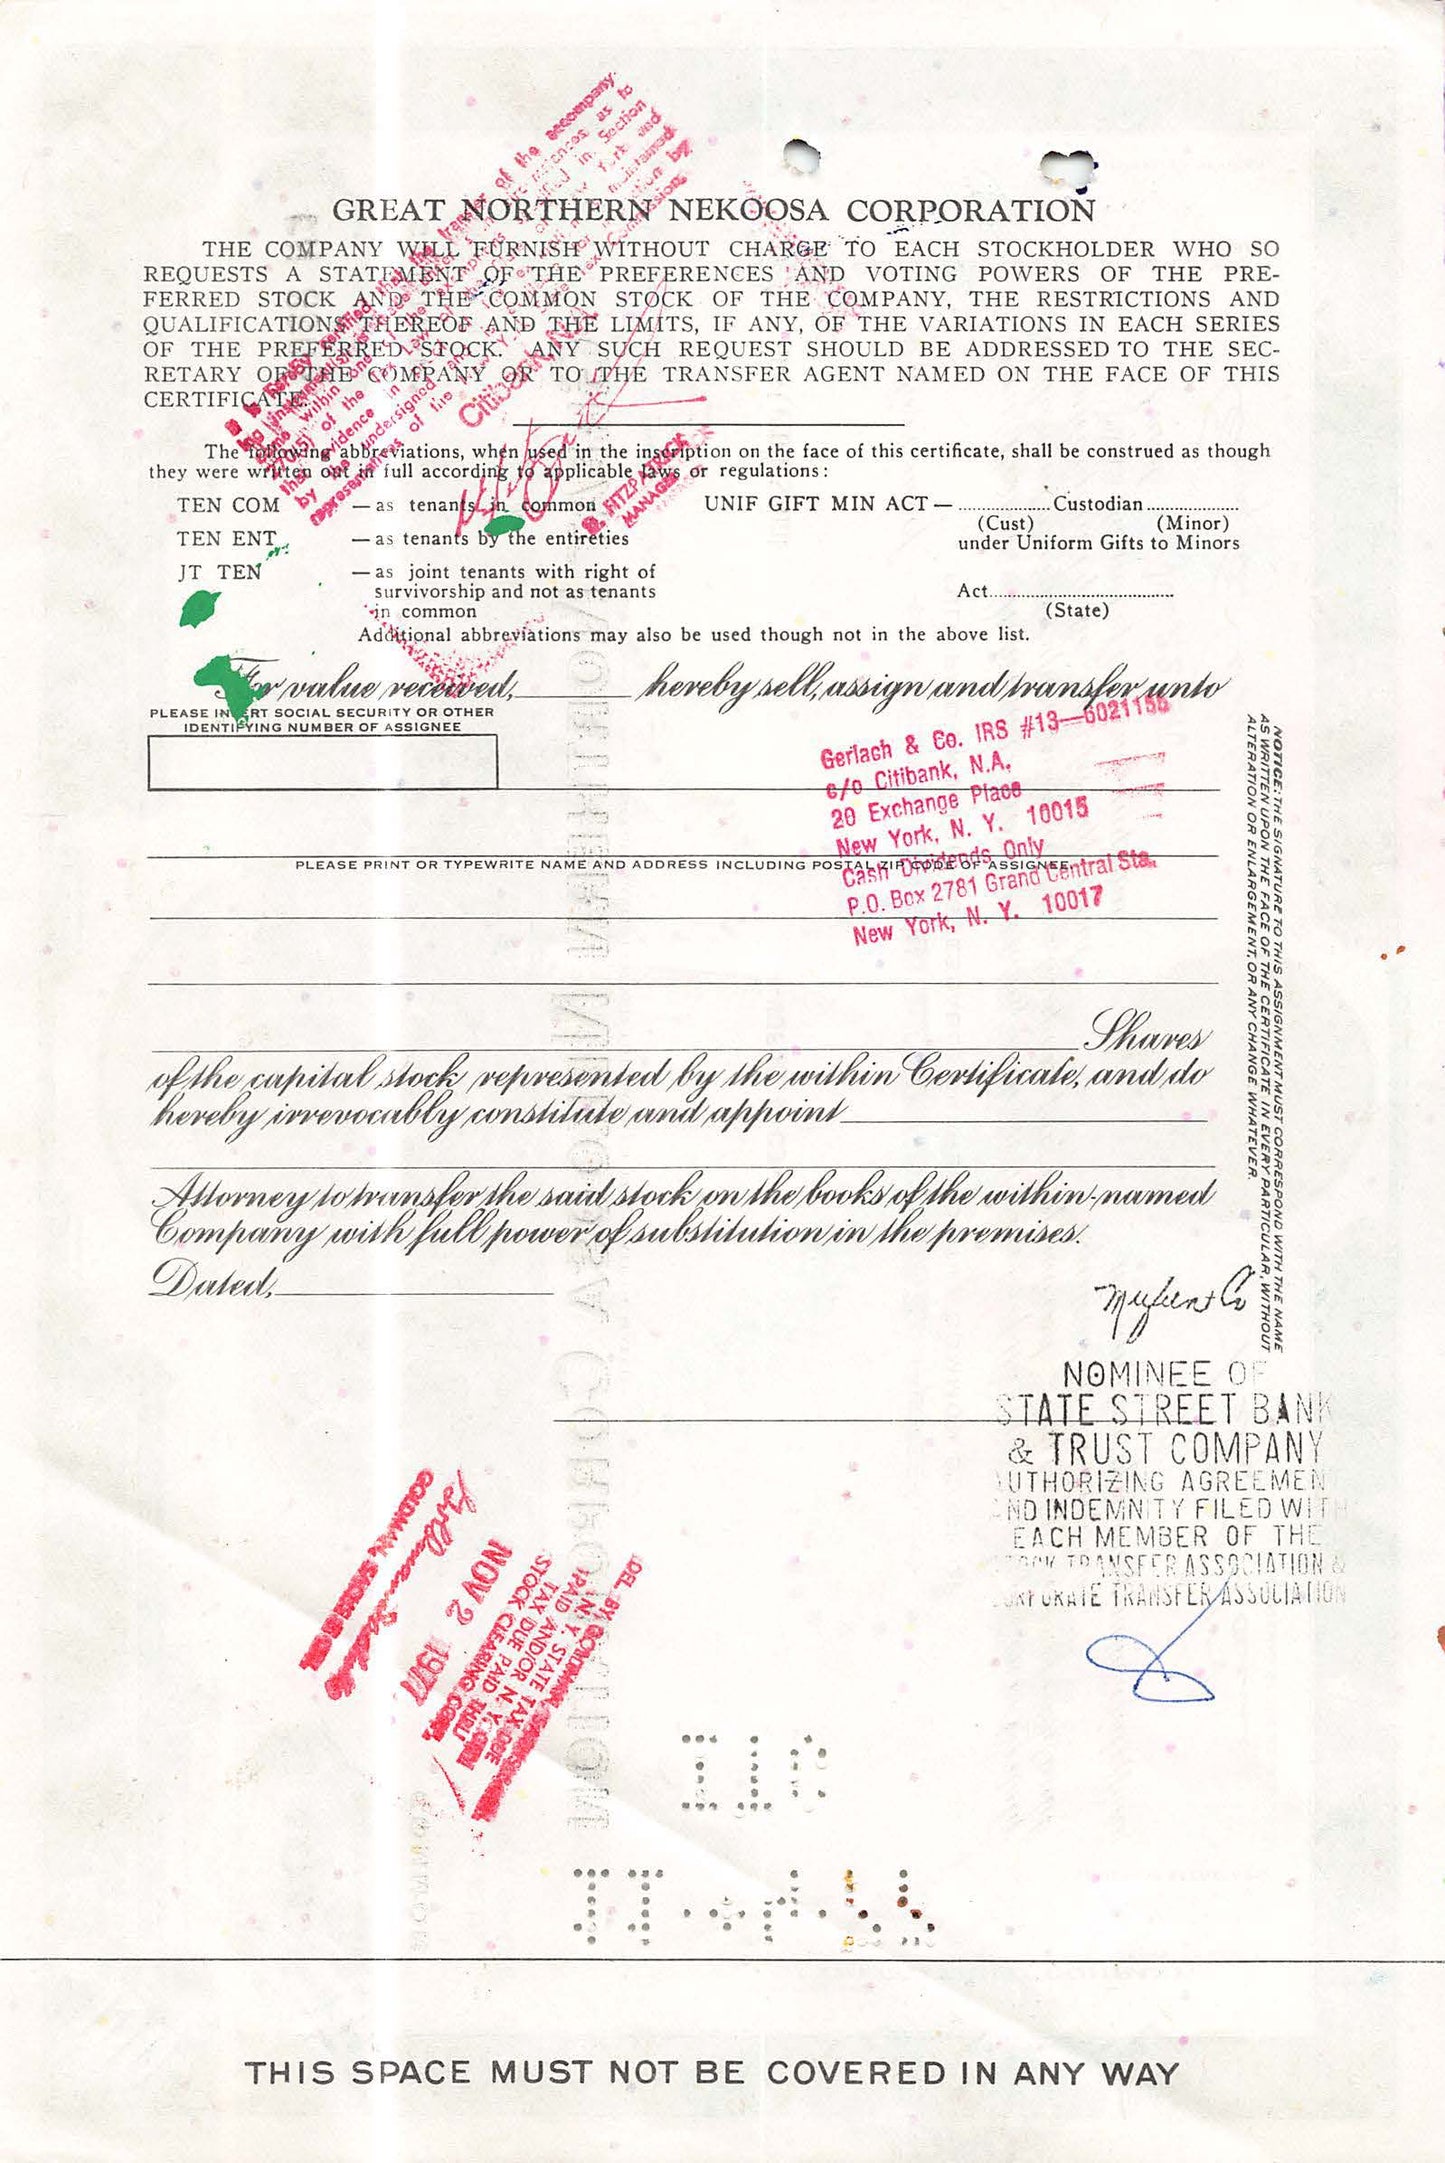 GREAT NORTHERN NEKOOSA CORPORATION
THE COMPANY WILL FURNISH WITHOUT CHARGE TO EACH STOCKHOLDER WHO SO
REQUESTS A STATEMENT OF THE PREFERENCES AND VOTING POWERS OF THE PRE-
FERRED STOCK AND THE COMMON STOCK OF THE COMPANY, THE RESTRICTIONS AND
QUALIFICATIONS THEREOF AND THE LIMITS, IF ANY, OF THE VARIATIONS IN EACH SERIES
OF THE PREFERRED STOCK. ANY SUCH REQUEST SHOULD BE ADDRESSED TO THE SEC-
RETARY OF THE COMPANY OR TO THE TRANSFER AGENT NAMED ON THE FACE OF THIS
CERTIFICATE.
Citibank, N.A.
The following abbreviations, when used in the inscription on the face of this certificate, shall be construed as though
they were written out in full according to applicable laws or regulations:
TEN COM — as tenants in common
TEN ENT — as tenants by the entireties
JT TEN — as joint tenants with right of
survivorship and not as tenants
in common
UNIF GIFT MIN ACT — .................... Custodian ....................
(Cust) (Minor)
under Uniform Gifts to Minors
Act........................................
(State)
FITZPATRICK
MANAGER
Additional abbreviations may also be used though not in the above list.
For value received, ________ hereby sell, assign and transfer unto
PLEASE INSERT SOCIAL SECURITY OR OTHER
IDENTIFYING NUMBER OF ASSIGNEE
Gerlach & Co. IRS #13—6021155
c/o Citibank, N.A.
20 Exchange Place
New York, N. Y. 10015
Cash Dividends Only
P.O. Box 2781 Grand Central Sta.
New York, N. Y. 10017
PLEASE PRINT OR TYPEWRITE NAME AND ADDRESS INCLUDING POSTAL ZIP CODE OF ASSIGNEE
Shares
of the capital stock represented by the within Certificate, and do
hereby irrevocably constitute and appoint
Attorney to transfer the said stock on the books of the within-named
Company with full power of substitution in the premises.
Dated,
NOTICE: THE SIGNATURE TO THIS ASSIGNMENT MUST CORRESPOND WITH THE NAME
AS WRITTEN UPON THE FACE OF THE CERTIFICATE IN EVERY PARTICULAR, WITHOUT
ALTERATION OR ENLARGEMENT, OR ANY CHANGE WHATEVER.
NOMINEE OF
STATE STREET BANK
& TRUST COMPANY
AUTHORIZING AGREEMENT
AND INDEMNITY FILED WITH
EACH MEMBER OF THE
STOCK TRANSFER ASSOCIATION &
CORPORATE TRANSFER ASSOCIATION
GOLDMAN, SACHS & CO.
NOV 2 1977
DEL. BY GOLDMAN, SACHS
N. Y. STATE TAX DUE
PAID AND/OR N. Y.
TAX DUE PAID THRU
STOCK CLEARING CORP.
THIS SPACE MUST NOT BE COVERED IN ANY WAY